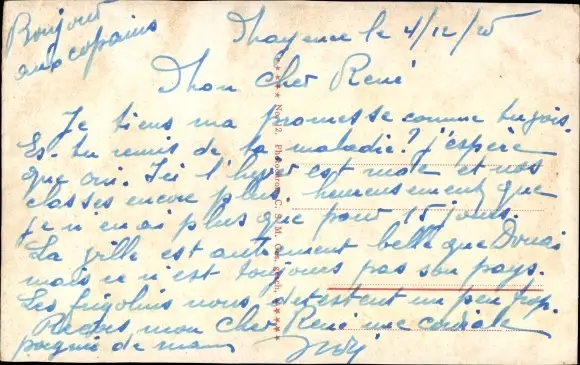 Bonjour
aux copains
Mayence le 4/12/25
Mon Cher René
Je tiens ma promesse comme tu vois.
Es-tu remis de ta maladie? j'espère
que oui. Ici l'hyver est rude et nos
classes encore plus. heureusement que
je n'en ai plus que pour 15 jours.
La ville est autrement belle que Douai
mais ce n'est toujours pas son pays.
Les frigolins nous détestent un peu trop.
Reçois mon cher René une cordiale
poignée de main